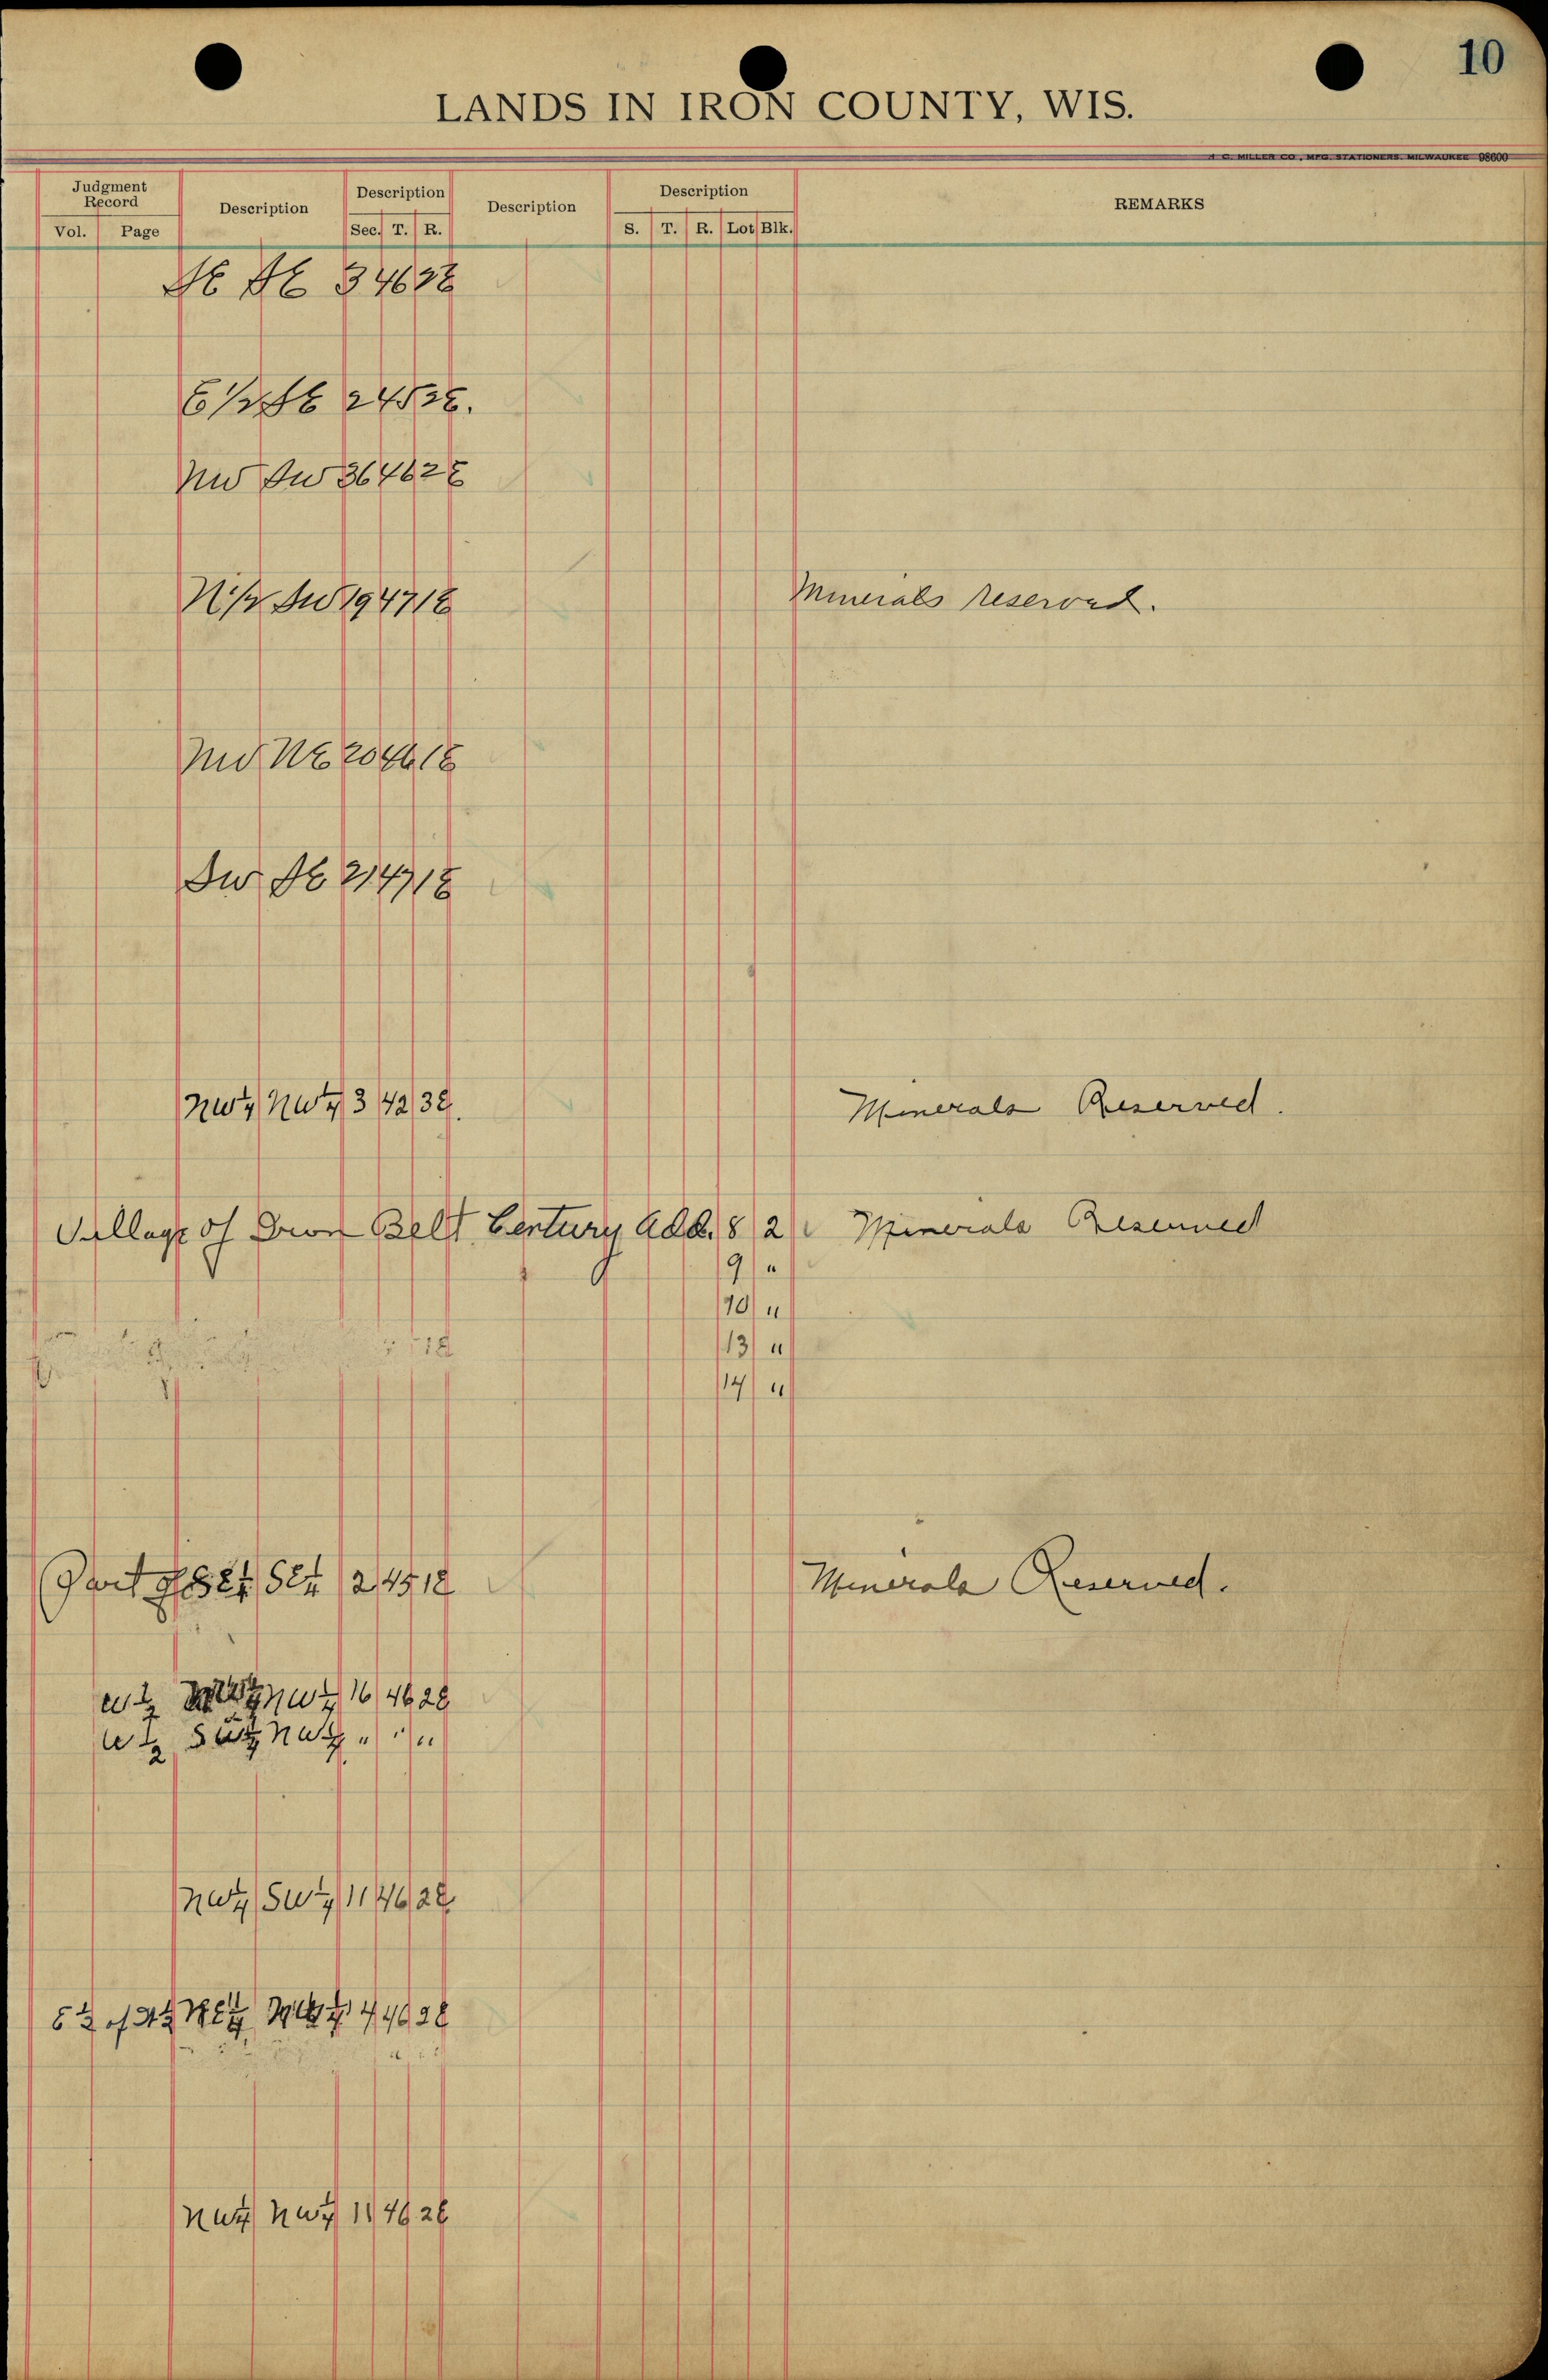 10
LANDS IN IRON COUNTY, WIS.
H. C. MILLER CO., MFG. STATIONERS. MILWAUKEE 98600
Judgment Record Description Description Description Description REMARKS
Vol. Page Sec. T. R. S. T. R. Lot Blk.
SE SE 34 46 2E
E 1/2 SE 24 5 2E.
NW SW 36 46 2E
N 1/2 SW 19 47 1E Minerals reserved.
NW NE 20 46 1E
SW SE 21 47 1E
NW 1/4 NW 1/4 3 42 3E. Minerals Reserved.
Village of Iron Belt Century Add. 8 2 Minerals Reserved
9 "
10 "
13 "
14 "
1E
Part of SE 1/4 SE 1/4 2 45 1E Minerals Reserved.
W 1/2 NW 1/4 NW 1/4 16 46 2E
W 1/2 SW 1/4 NW 1/4 " " "
NW 1/4 SW 1/4 11 46 2E
E 1/2 of NE 1/4 4 46 2E
NW 1/4 NW 1/4 11 46 2E